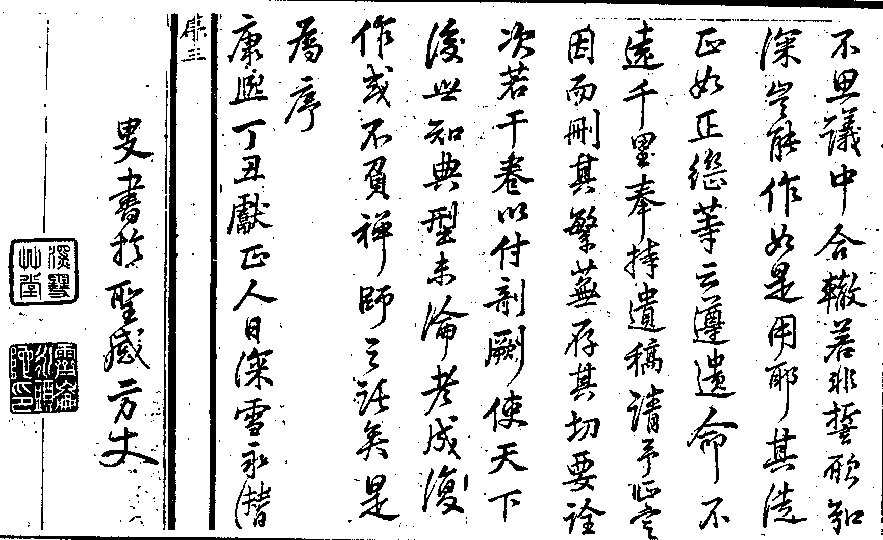 不思議中合轍若非誓願知
深豈能作如是用耶其徒
正如正總等云遵遺命不
遠千里奉持遺稿請予證定
因而刪其繁蕪存其切要詮
次若干卷以付剞劂使天下
後世知典型未淪老成復
作或不負禪師之託矣是
為序
康熙丁丑獻正人日深雪永
序三
叟書於聖感方丈